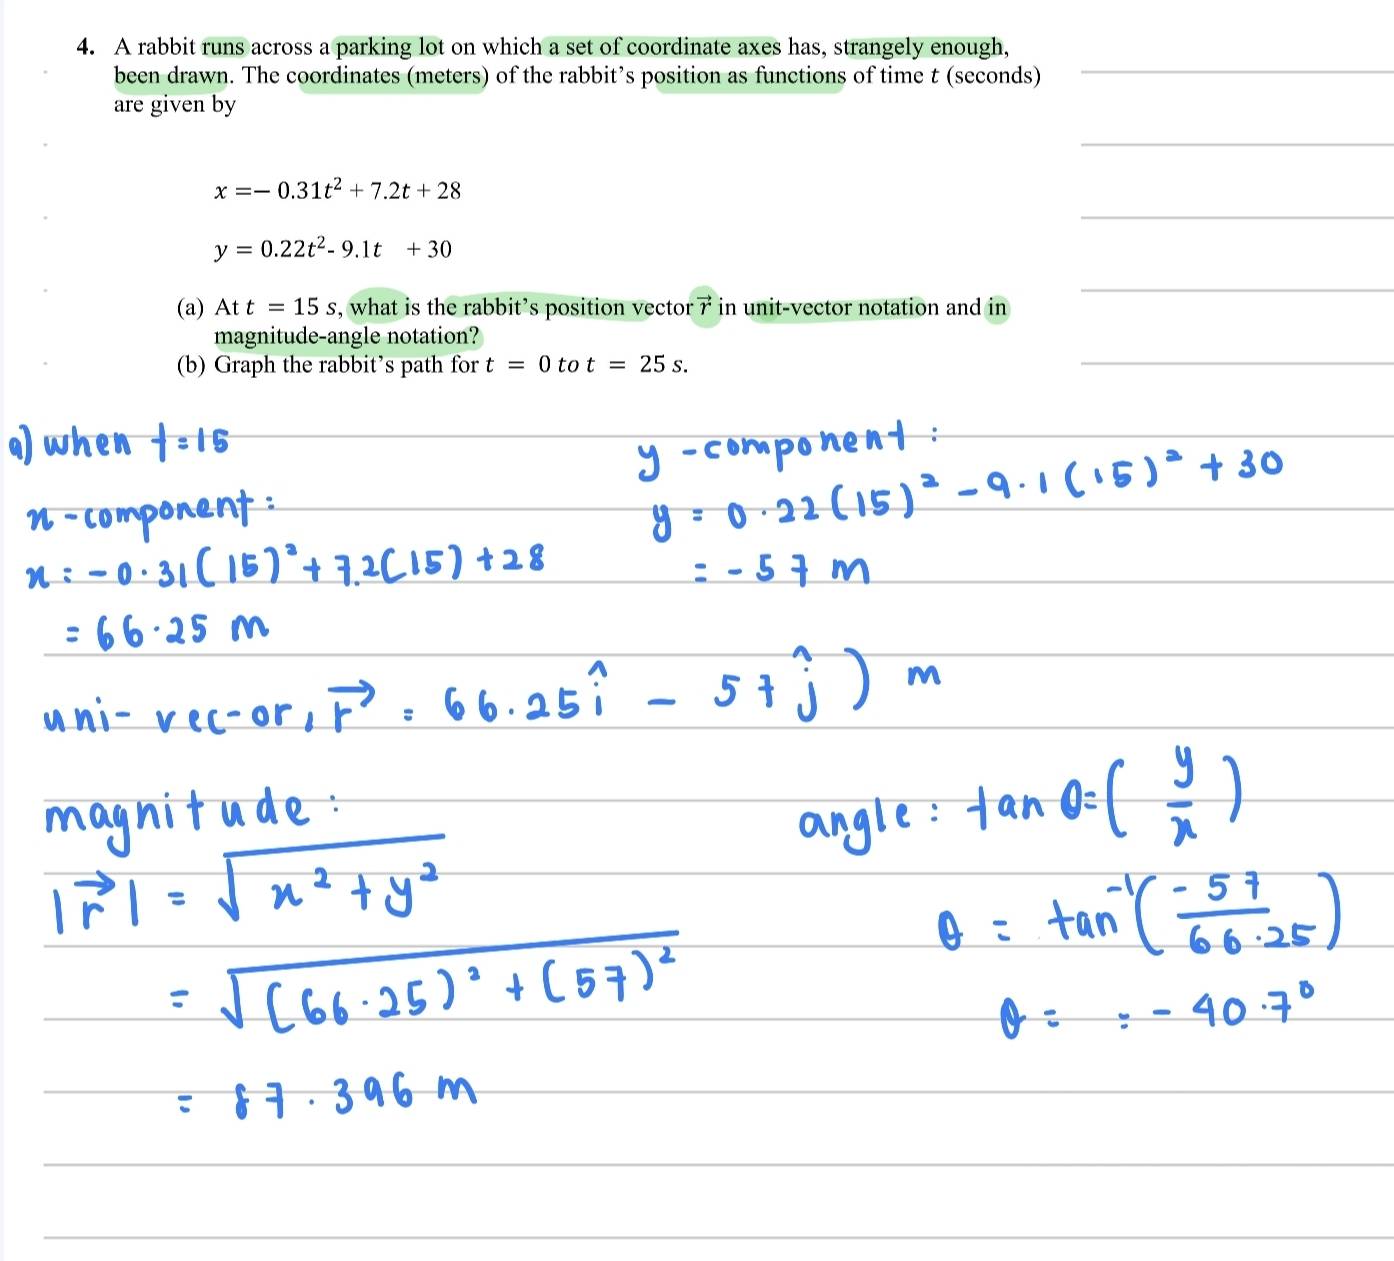 4. A rabbit runs across a parking lot on which a set of coordinate axes has, strangely enough,
been drawn. The coordinates (meters) of the rabbit's position as functions of time t (seconds)
are given by
x =− 0.31t² + 7.2t + 28
y = 0.22t²- 9.1t + 30
(a) At t = 15 s, what is the rabbit's position vector r⃗ in unit-vector notation and in
magnitude-angle notation?
(b) Graph the rabbit's path for t = 0 to t = 25 s.
a) when t=15
x-component:
x = -0.31(15)² + 7.2(15) + 28
= 66.25 m
y-component:
y = 0.22(15)² - 9.1(15)² + 30
= -57 m
uni-vec-or, r⃗ = 66.25î - 57ĵ) m
magnitude:
|r⃗| = √x² + y²
= √(66.25)² + (57)²
= 87.396 m
angle: tan θ = (y/x)
θ = tan⁻¹(-57/66.25)
θ = = -40.7°